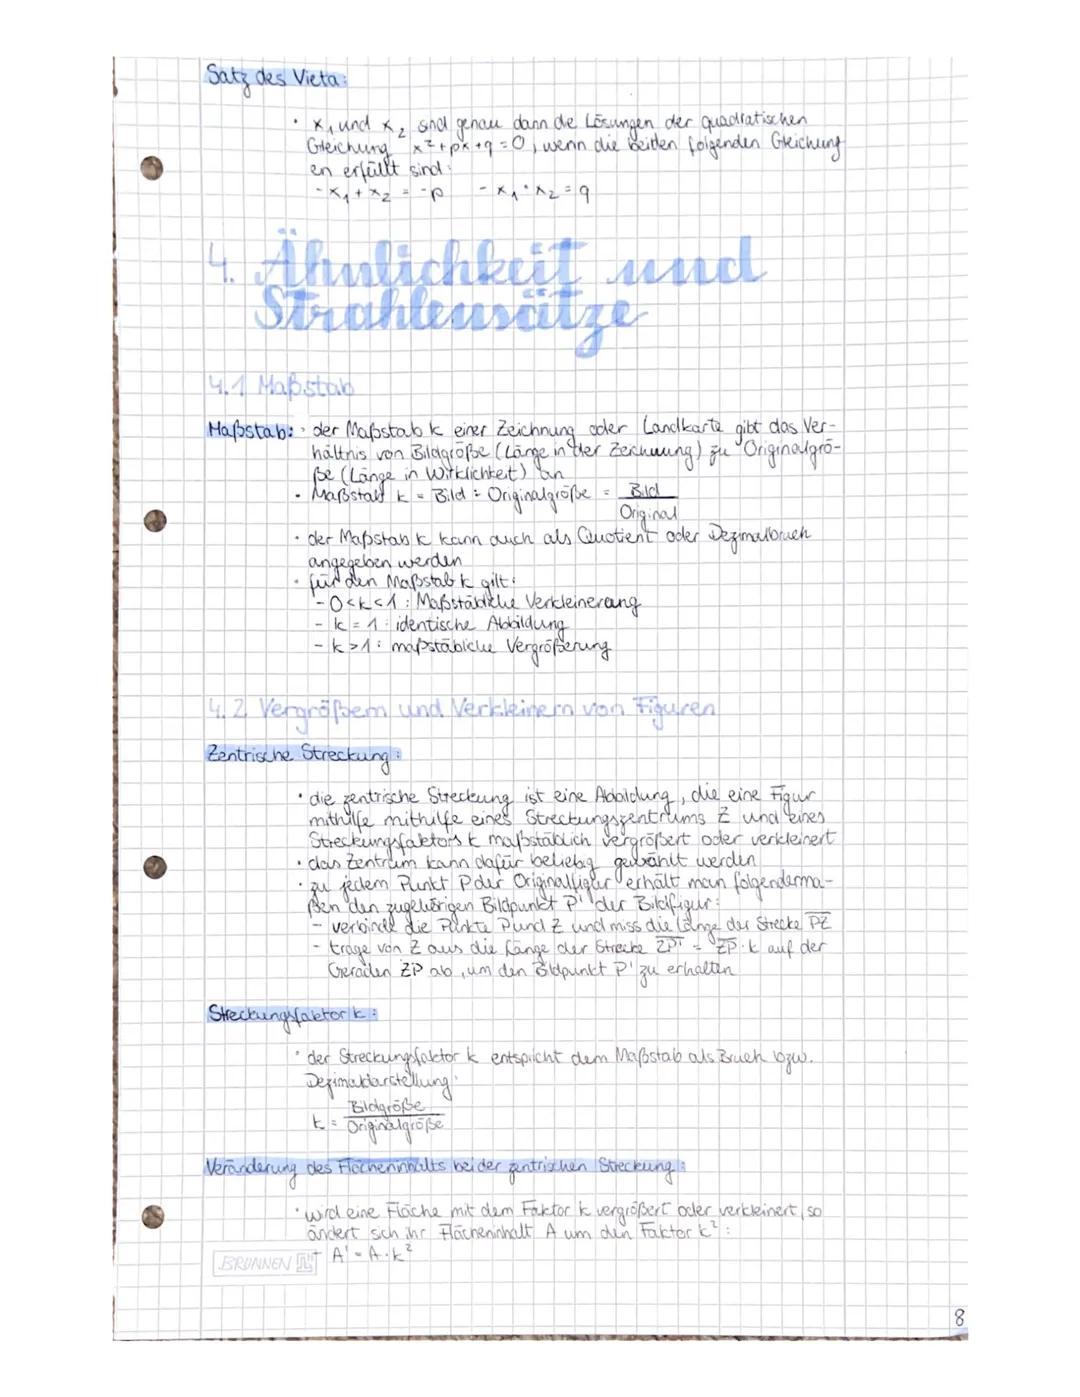 Satz des Vieta:
• x₁ und x₂ sind genau dann die Lösungen der quadratischen
Gleichung x²+px+q=0, wenn die beiden folgenden Gleichung
en erfüllt sind:
- x₁ + x₂ = -p - x₁ · x₂ = q
4. Ähnlichkeit und
Strahlensätze
4.1 Maßstab
Maßstab: • der Maßstab k einer Zeichnung oder Landkarte gibt das Ver-
hältnis von Bildgröße (Länge in der Zeichnung) zu Originalgrö-
ße (Länge in Wirklichkeit) an
• Maßstab k = Bild : Originalgröße = Bild
Original
• der Maßstab k kann auch als Quotient oder Dezimalbruch
angegeben werden
• für den Maßstab k gilt:
- 0<k<1: Maßstäbliche Verkleinerung
- k = 1: identische Abbildung
- k >1: maßstäbliche Vergrößerung
4.2 Vergrößern und Verkleinern von Figuren
Zentrische Streckung:
• die zentrische Streckung ist eine Abbildung, die eine Figur
mithilfe mithilfe eines Streckungszentrums Z und eines
Streckungsfaktors k maßstäblich vergrößert oder verkleinert
• das Zentrum kann dafür beliebig gewählt werden
• zu jedem Punkt P der Originalfigur erhält man folgenderma-
ßen den zugehörigen Bildpunkt P' der Bildfigur:
- verbinde die Punkte P und Z und miss die Länge der Strecke P̅Z̅
- trage von Z aus die Länge der Strecke Z̅P̅'̅ = Z̅P̅ · k auf der
Geraden ZP ab, um den Bildpunkt P' zu erhalten
Streckungsfaktor k:
• der Streckungsfaktor k entspricht dem Maßstab als Bruch bzw.
Dezimaldarstellung:
k = Bildgröße
Originalgröße
Veränderung des Flächeninhalts bei der zentrischen Streckung:
• wird eine Fläche mit dem Faktor k vergrößert oder verkleinert, so
ändert sich ihr Flächeninhalt A um den Faktor k²:
- A' = A · k²
BRUNNEN
8